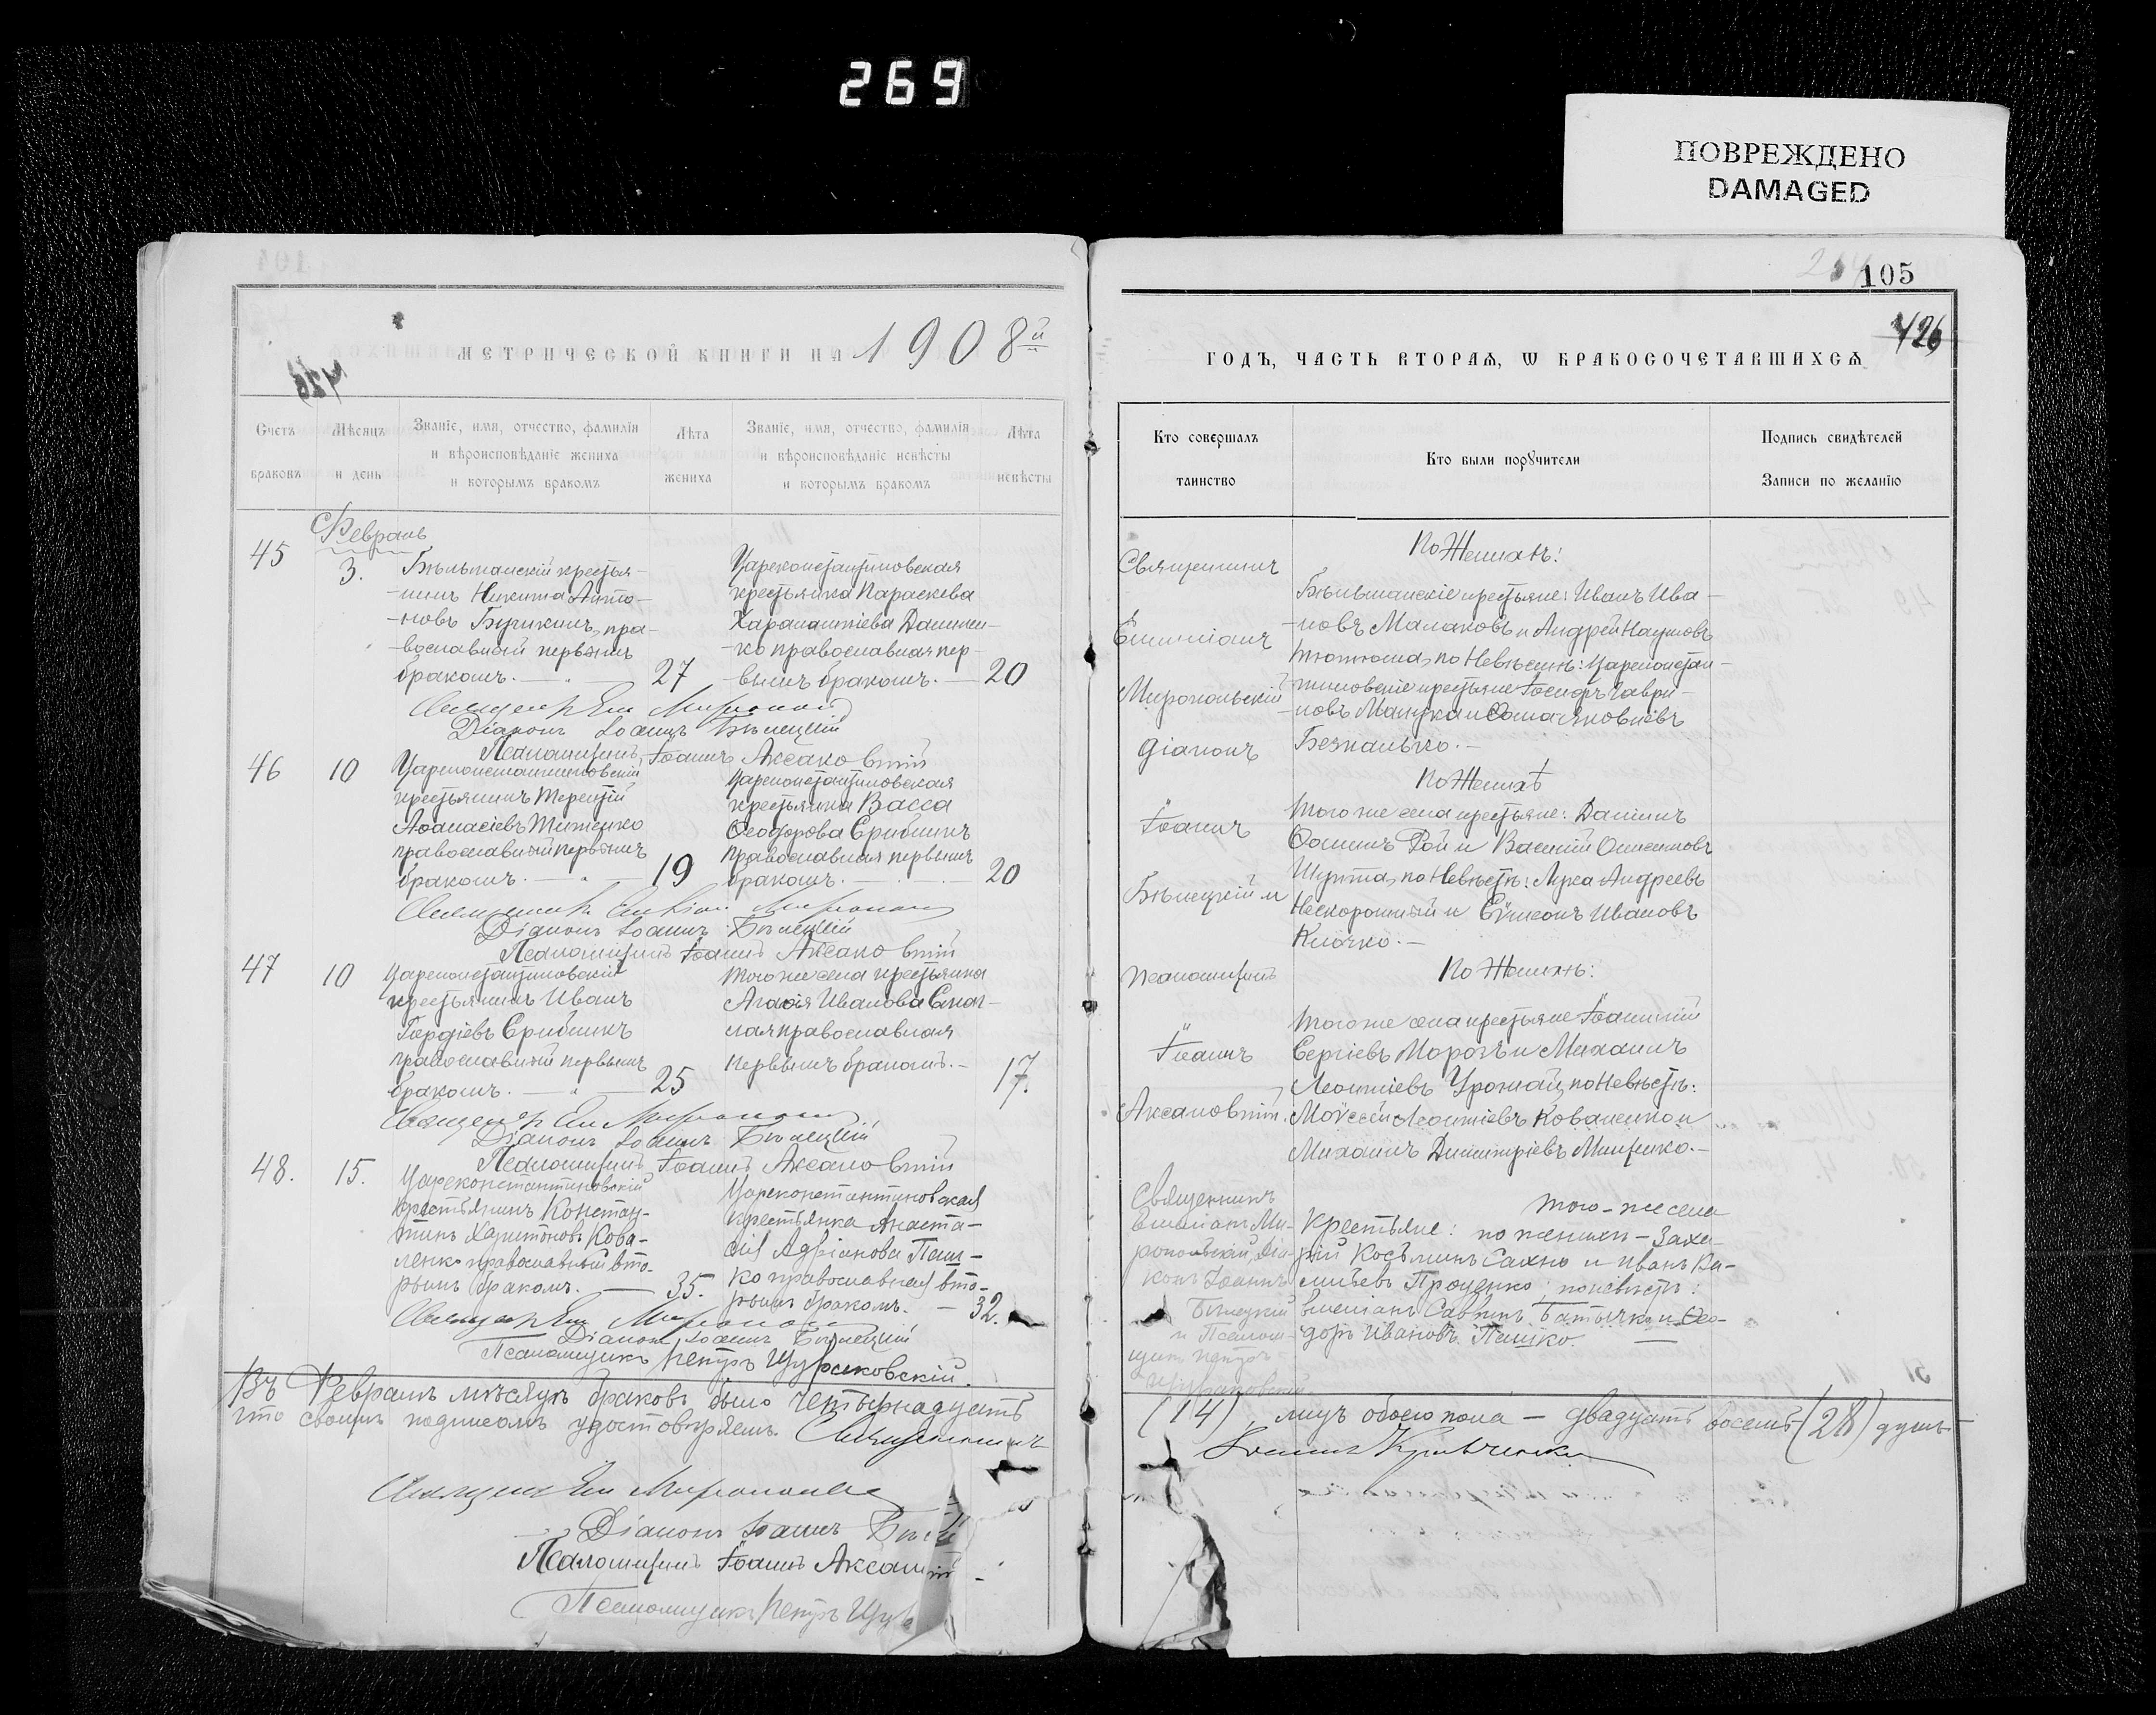 269
ПОВРЕЖДЕНО
DAMAGED
105
426
МЕТРИЧЕСКОЙ КНИГИ НА 1908й
Счетъ браковъ
Мѣсяцъ и день
Званіе, имя, отчество, фамилія
и вѣроисповѣданіе жениха
и которымъ бракомъ
Лѣта жениха
Званіе, имя, отчество, фамилія
и вѣроисповѣданіе невѣсты
и которымъ бракомъ
Лѣта невѣсты
Февраль
45
3.
Бѣльманскій крестья-
-нинъ Никита Анто-
-новъ Бугикинъ, пра-
-вославный первымъ
бракомъ. — 27
Цареконстантиновская
крестьянка Параскева
Харалампіева Данилен-
-ко православная пер-
-вымъ бракомъ. — 20
Діаконъ Іоаннъ Бѣлецкій
Псаломщикъ Іоаннъ Аксаковскій
46
10
Цареконстантиновскій
крестьянинъ Терентій
Аѳанасіевъ Тименко
православный первымъ
бракомъ. — 19
Цареконстантиновская
крестьянка Васса
Ѳеодорова Ерибникъ
православная первымъ
бракомъ. — 20
Діаконъ Іоаннъ Бѣлецкій
Псаломщикъ Іоаннъ Аксаковскій
47
10
Цареконстантиновскій
крестьянинъ Иванъ
Гордіевъ Ерибникъ
православный первымъ
бракомъ. — 25
того же села крестьянка
Агаѳія Иванова
православная
первымъ бракомъ. —
17.
Діаконъ Іоаннъ Бѣлецкій
Псаломщикъ Іоаннъ Аксаковскій
48.
15.
Цареконстантиновскій
крестьянинъ Констан-
тинъ Харитоновъ Кова-
ленко православный вто-
рымъ бракомъ. — 35.
Цареконстантиновская
крестьянка Анаста-
сія Адріанова Паш-
ко православная вто-
рымъ бракомъ. — 32.
Діаконъ Іоаннъ Бѣлецкій
Псаломщикъ Петръ Щураковскій.
Въ Февралѣ мѣсяцѣ браковъ было четырнадцать
что своимъ подписомъ удостовѣряемъ. Священникъ
Діаконъ Іоаннъ
Псаломщикъ Іоаннъ
Псаломщикъ Петръ
ГОДЪ, ЧАСТЬ ВТОРАѦ, Ѡ БРАКОСОЧЕТАВШИХСѦ
Кто совершалъ
таинство
Кто были порꙋчители
Подпись свидѣтелей
Записи по желанію
Священникъ
Емиліанъ
Миропольскій
діаконъ
Іоаннъ
Бѣлецкій и
псаломщикъ
Іоаннъ
Аксаковскій.
По Женихѣ:
Бѣльманскіе крестьяне: Иванъ Ива-
-новъ Малаковъ и Андрей Наумовъ
Тютюма, по Невѣстѣ: Цареконстан-
-тиновскіе крестьяне Іосифъ Гаври-
-ловъ Манжука и Ѳома Яковлевъ
Безпалько. —
По Женихѣ
того же села крестьяне: Даніилъ
Ѳоминъ Рой и Василій Онисимовъ
Шурпта, по Невѣстѣ: Лука Андреевъ
Нескоромный и Сѵмеонъ Ивановъ
Клочко. —
По Женихѣ:
того же села крестьяне Іоанникій
Сергіевъ Морозъ и Михаилъ
Леонтіевъ Урожай, по Невѣстѣ:
Моѵсей Леонтіевъ Коваленко и
Михаилъ Димитріевъ Мищенко. —
Священникъ
Емиліанъ Ми-
ропольскій, діа-
конъ Іоаннъ
Бѣлецкій
и Псалом-
щикъ Петръ
Щураковскій.
того-же села
Крестьяне: по женихѣ — Заха-
рій Косьминъ Сахно и Иванъ Ва-
сильевъ Проценко; по невѣстѣ:
Емеліанъ Саввинъ Батычко и Ѳео-
доръ Ивановъ Пашко. —
(14), лицъ обоего пола — двадцать восемь (28) душъ
Іоаннъ Кравченко